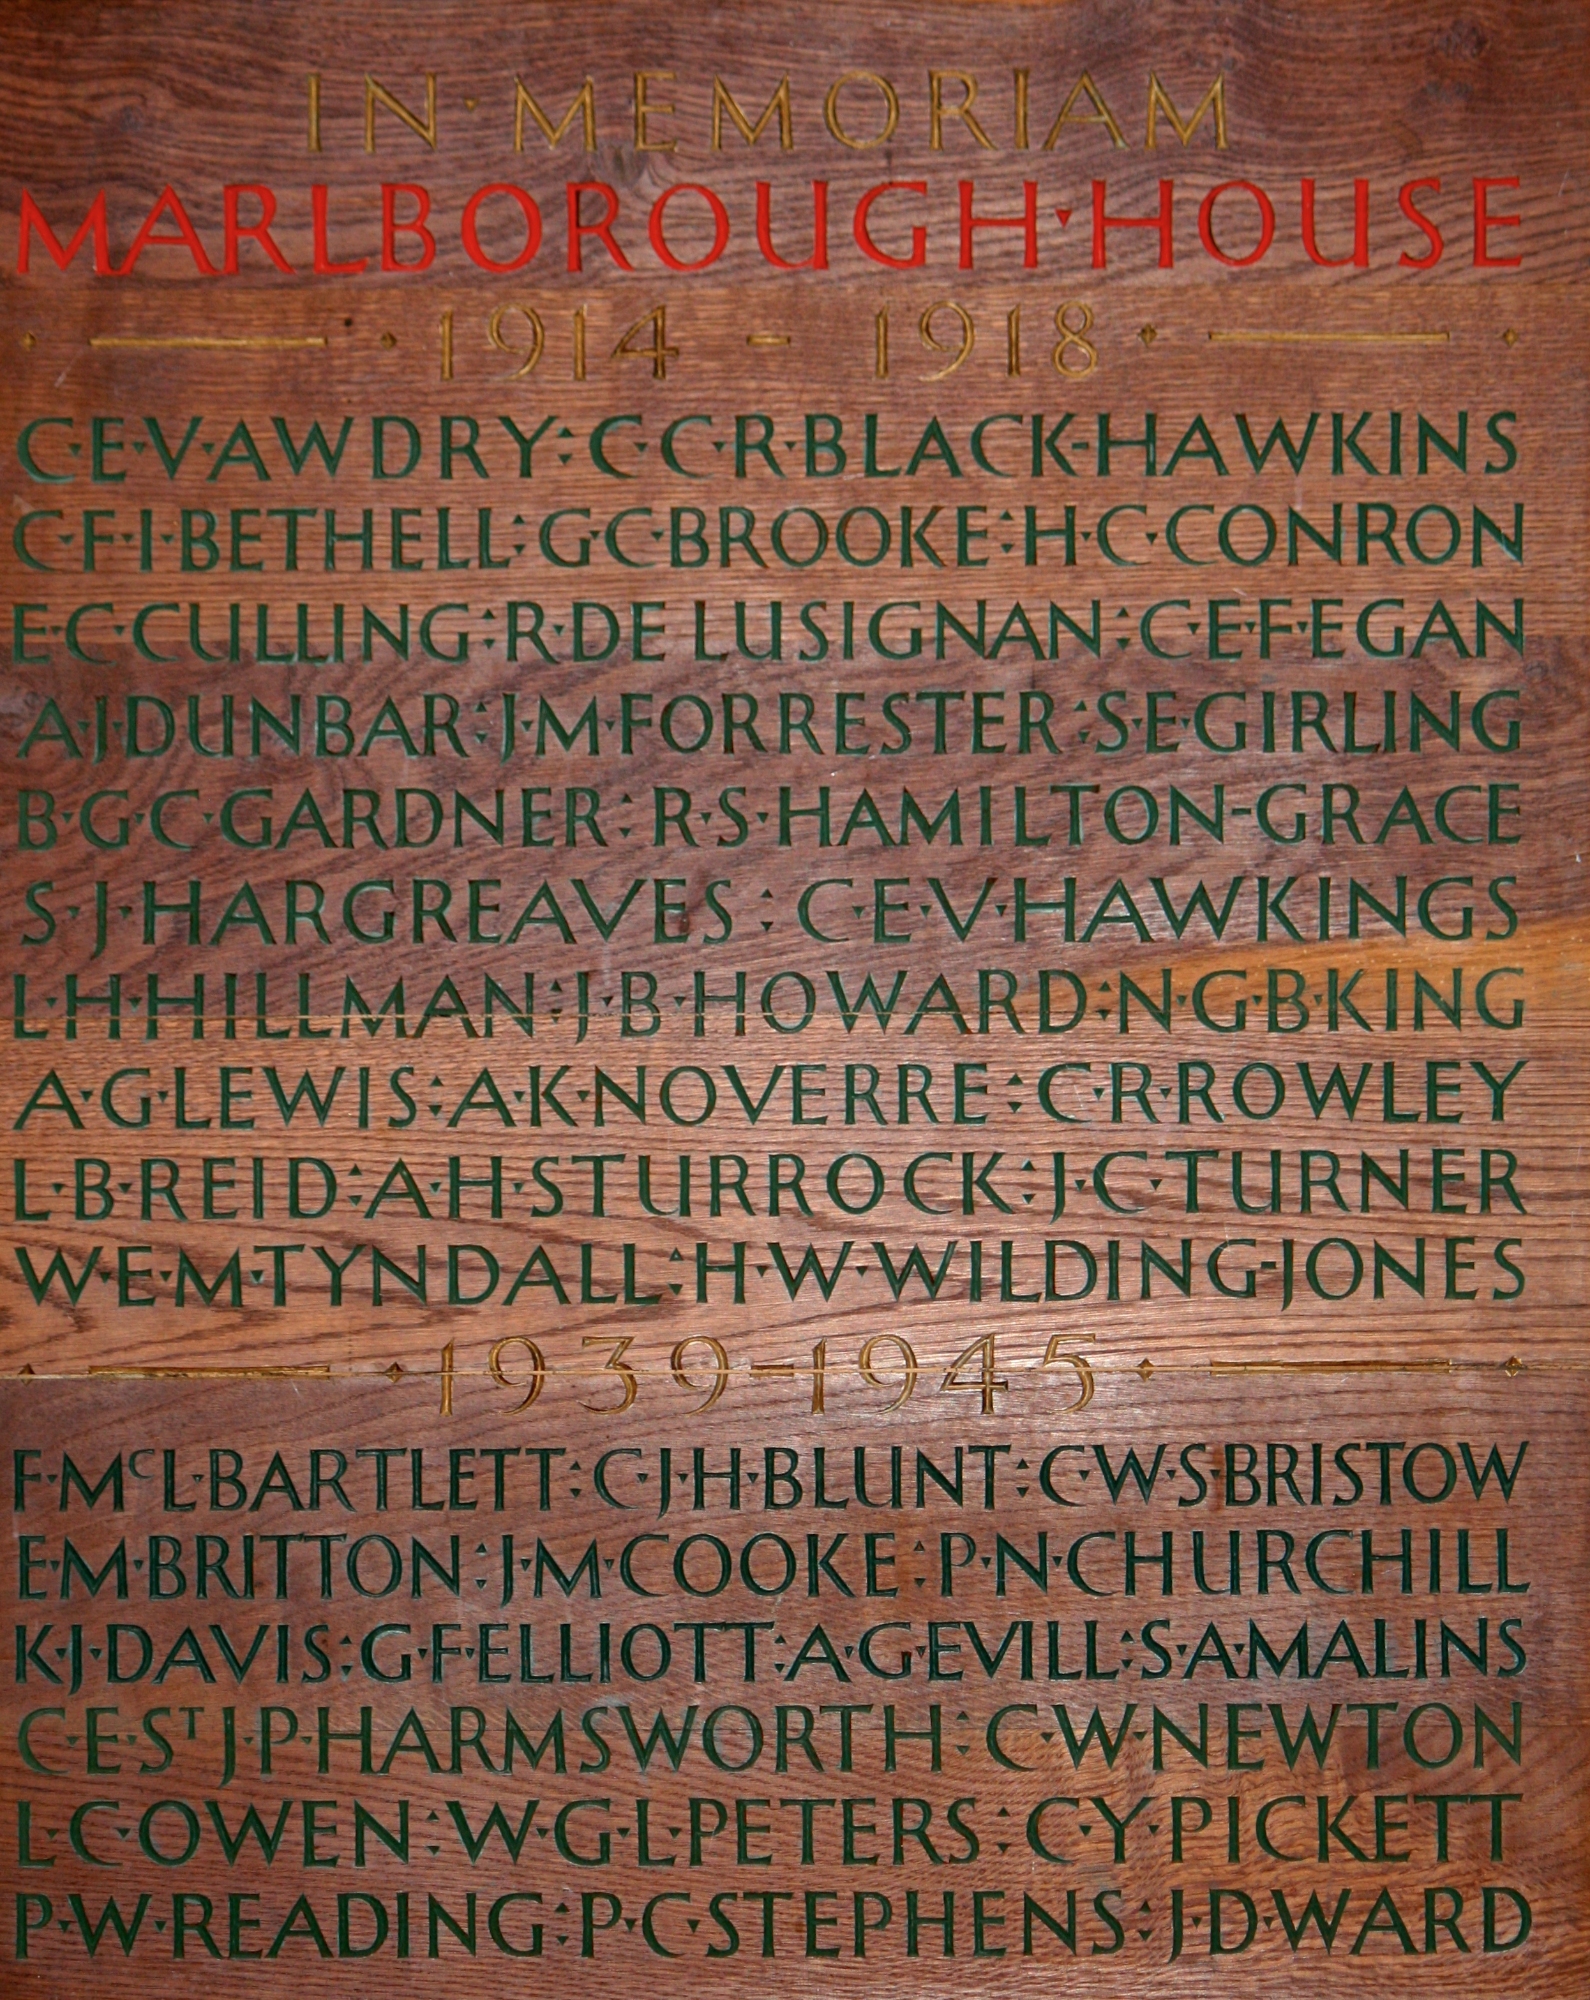 IN·MEMORIAM
MARLBOROUGH·HOUSE
1914 - 1918
C·E·V·AWDRY : C·C·R·BLACK-HAWKINS
C·F·I·BETHELL : G·C·BROOKE : H·C·CONRON
E·C·CULLING : R·DE LUSIGNAN : C·E·F·FEGAN
A·J·DUNBAR : J·M·FORRESTER : S·E·GIRLING
B·G·C·GARDNER : R·S·HAMILTON-GRACE
S·J·HARGREAVES : C·E·V·HAWKINGS
L·H·HILLMAN : J·B·HOWARD : N·G·B·KING
A·G·LEWIS : A·K·NOVERRE : C·R·ROWLEY
L·B·REID : A·H·STURROCK : J·C·TURNER
W·E·M·TYNDALL : H·W·WILDING-JONES
1939-1945
F·McL·BARTLETT : C·J·H·BLUNT : C·W·S·BRISTOW
E·M·BRITTON : J·M·COOKE : P·N·CHURCHILL
K·J·DAVIS : G·F·ELLIOTT : A·G·EVILL : S·A·MALINS
C·E·ST J·P·HARMSWORTH : C·W·NEWTON
L·C·OWEN : W·G·L·PETERS : C·Y·PICKETT
P·W·READING : P·C·STEPHENS : J·D·WARD